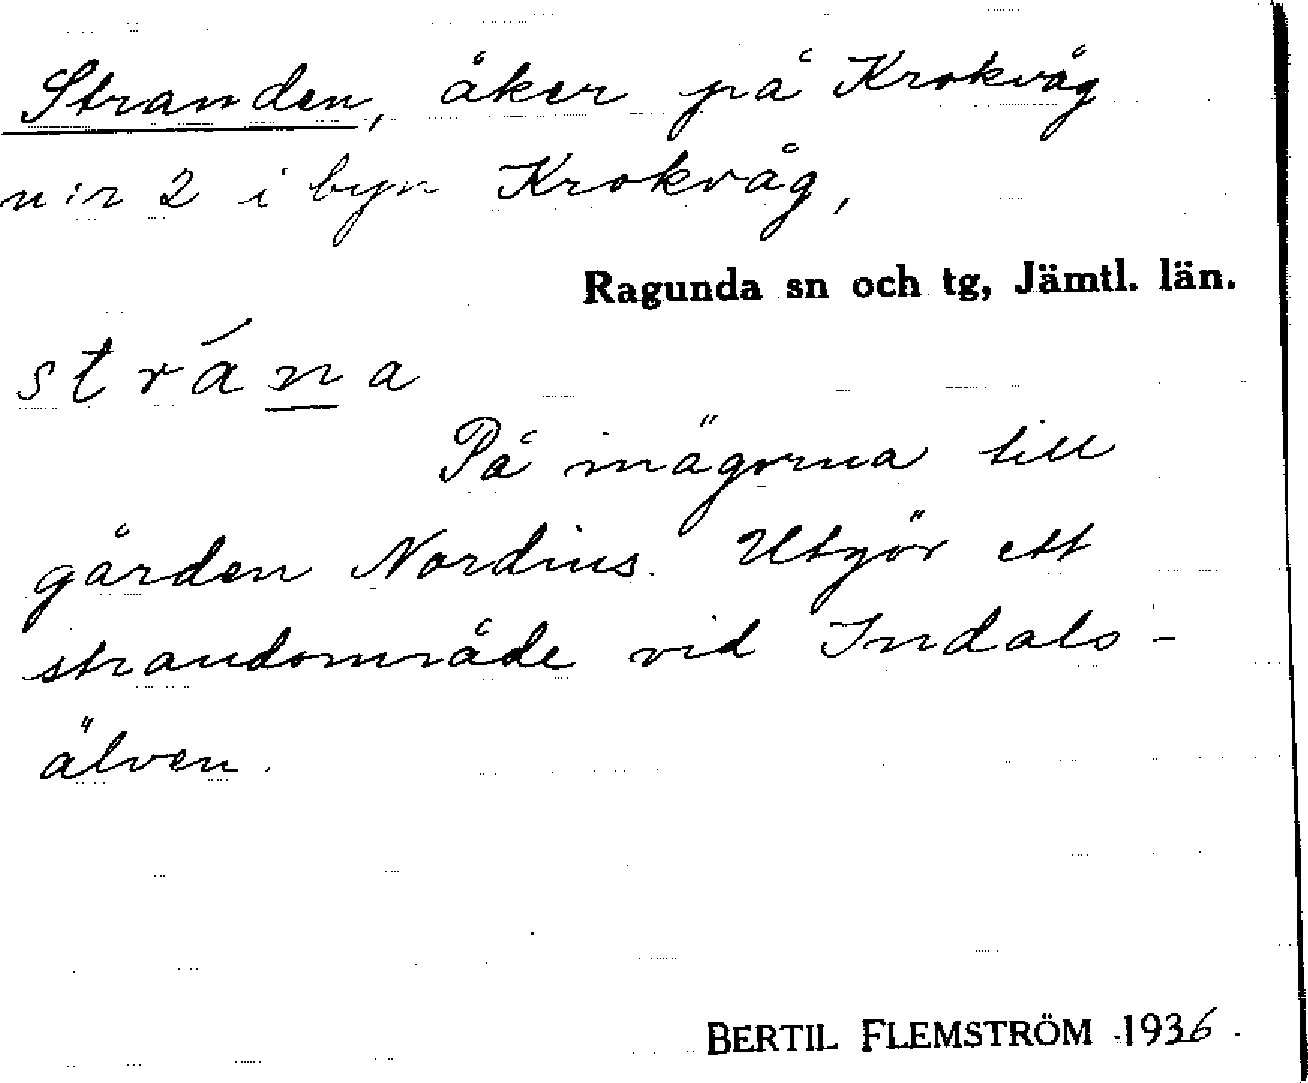 Stranden, åker på Krokvåg
n:r 2 i byn Krokvåg,
Ragunda sn och tg, Jämtl. län.
strána
På inägorna till
gården Nordius. Utgör ett
strandområde vid Indals-
älven.
BERTIL FLEMSTRÖM 1936.